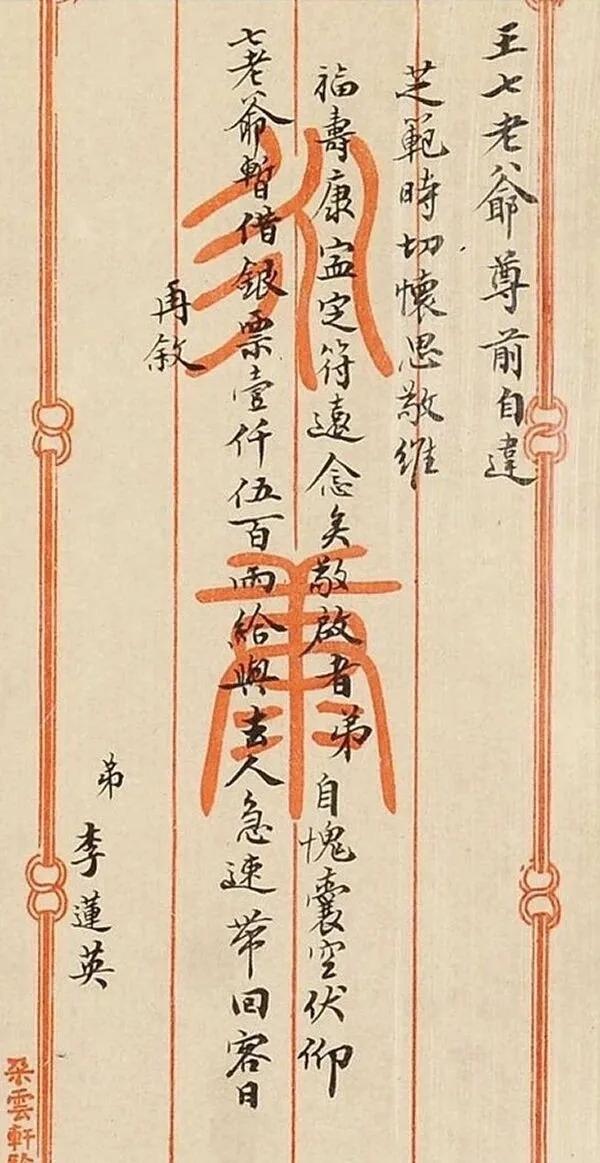 王七老爺尊前自違
芝範時切懷思敬維
福壽康寍定符遠念矣敬啟者弟自愧囊空伏仰
七老爺暫借銀票壹仟伍百兩給與去人急速帶回容日
再敘
弟 李蓮英
朵雲軒